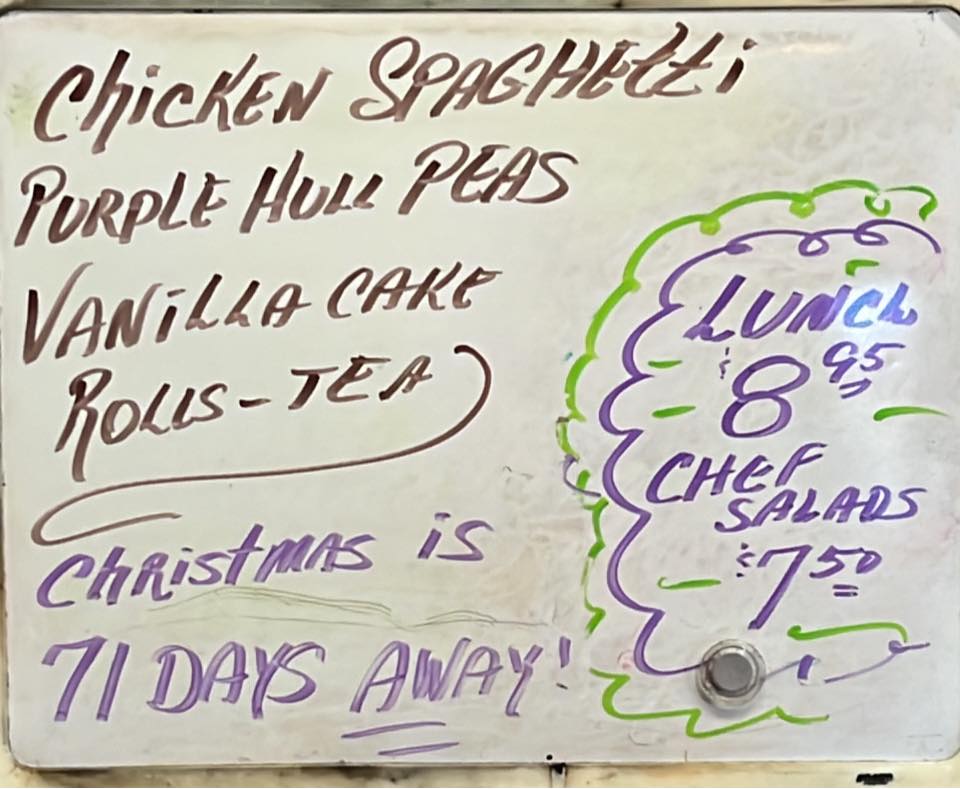 Chicken Spaghetti
Purple Hull Peas
Vanilla Cake
Rolls - Tea
Christmas is
71 Days Away!
Lunch
$8 95
Chef
Salads
$7 50